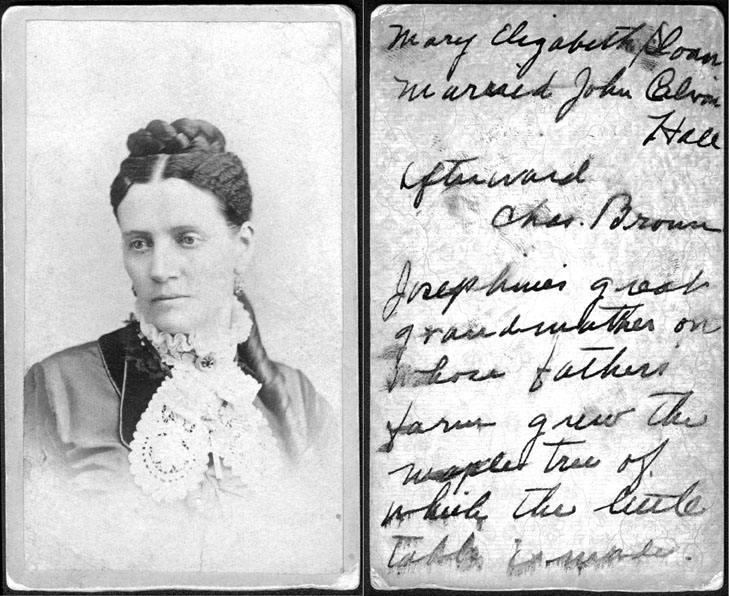 Mary Elizabeth Sloan
Married John Calvin
Hall
Afterward
Chas. Brown
Josephine's great
grandmother on
whose fathers
farm grew the
maple tree of
which the little
table is made.